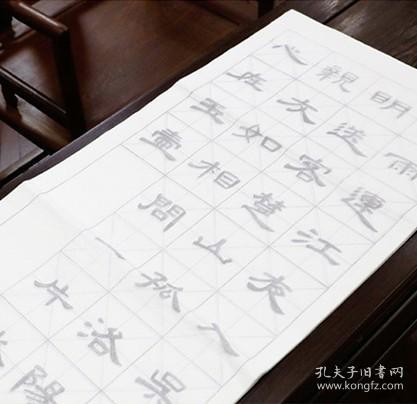 雨連江夜入吳
明送客楚山孤洛陽
親友如相問一片
心在玉壺
孔夫子旧书网
www.kongfz.com